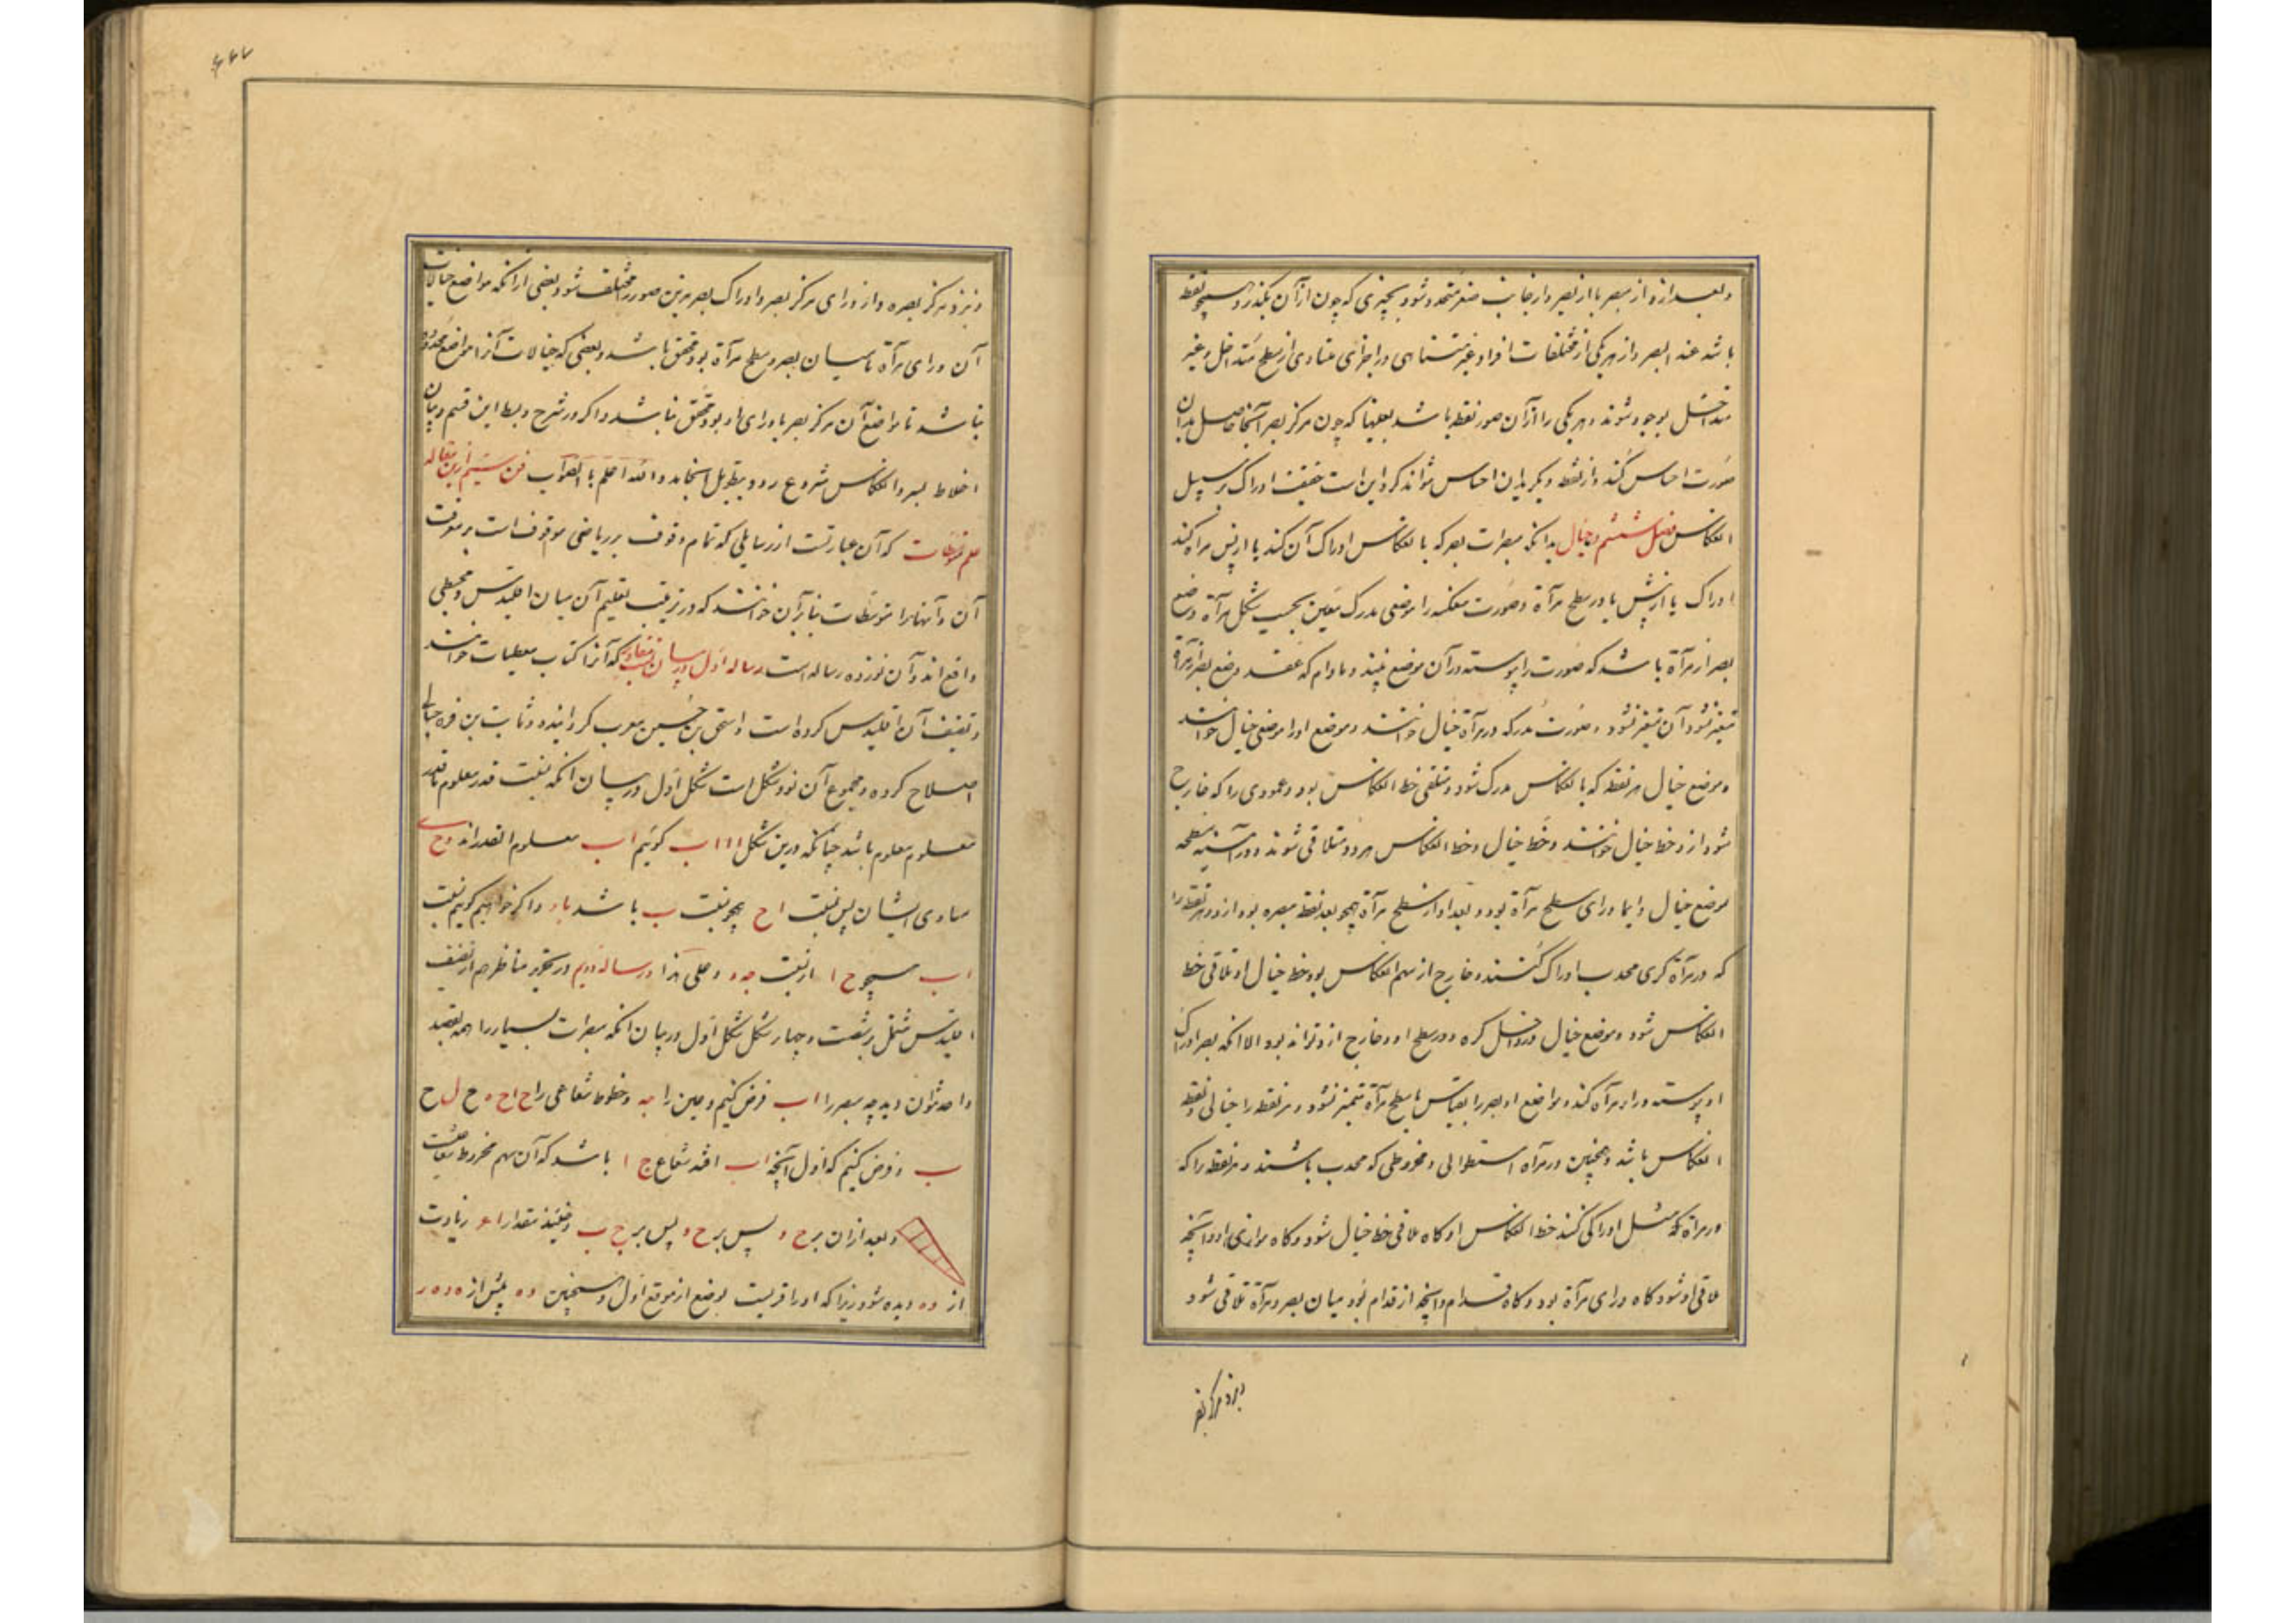 و بعد از و از مبصر با از بصر و از جانب صغر متحد و شود بچیزی که چون از آن بگذرد همچو نقطه
باشد عند البصر و از هر یکی از مختلفات افراد غیر متناهی در اجزای متناوی از سطح متداخل و غیر
متداخل بوجود شوند و هر یکی را از آن صور نقطه باشد بعینها که چون مرکز بصر آنجا حاصل بدان
صورت احساس کند و از نقطه دیگر بدان احساس نتواند کرد این است حقیقت ادراک بر سبیل
انعکاس فصل ششم در خیال بدانکه مبصرات بصر که بانعکاس ادراک آن کند یا از پس مرآة کند
ادراک یا از پیش یا در سطح مرآة و صورت منعکسه را موضعی مدرک معین بحسب شکل مرآة و وضع
بصر از مرآة باشد که صورت را پیوسته در آن موضع بیند و مادام که وضع بصر از مرآة
متغیر نشود آن متغیر نشود و صورت مدرکه در مرآة خیال خوانند و موضع او را موضع خیال خوانند
و موضع خیال هر نقطه که بانعکاس مدرک شود و ملتقی خط انعکاس بود و عمودی را که خارج
شود از و خط خیال خوانند و خط خیال و خط انعکاس هر دو متلاقی شوند و در آینه مسطحه
موضع خیال دایما ورای سطح مرآة بود و بعد او از سطح مرآة همچو بعد نقطه مبصره بود از و و هر نقطه را
که در مرآة کری محدب ادراک کنند و خارج از سهم انعکاس بود خط خیال او تلاقی خط
انعکاس شود و موضع خیال در داخل کره و در سطح او و خارج از و تواند بود الا آنکه بصر ادراک
او پیوسته ورای مرآة کند و مواضع او بصر را بقیاس با سطح مرآة متمیز نشود و هر نقطه را خیالی و نقطه
انعکاس باشد و همچنین در مرآة استطوانی و مخروطی که محدب باشند و هر نقطه را که
در مرآة ادراک کنند خط انعکاس او گاه ملاقی خط خیال شود و گاه موازی او و آنچه
ملاقی او شود گاه ورای مرآة بود و گاه قدام و آنچه از قدام بود میان بصر و مرآة تلاقی شود
و نزد مرکز بصر
و نزد مرکز بصره و از ورای مرکز بصر و ادراک بصر مرین صور را مختلف شود بعضی از آنکه مواضع خیالات
آن ورای مرآة یا میان بصر و سطح مرآة بود محقق باشد و بعضی که خیالات آنرا مواضع محدوده
نباشد تا مواضع آن مرکز بصر یا ورای او بود محقق نباشد و اگر در شرح و بسط این قسم و بیان
اغلاط بصر و انعکاس شروع رود بتطویل انجامد و الله اعلم بالصواب فن سیم از این مقاله
علم متوسطات که آن عبارتست از رسایلی که تمام وقوف بر ریاضی موقوف است بر معرفت
آن و آنها را متوسطات بنا بر آن خوانند که در ترتیب تعلیم آن میان اقلیدس و مجسطی
واقع اند و آن نوزده رساله است رساله اول در بیان که آنرا کتاب معطیات خوانند
و تصنیف آن اقلیدس کرده است و اسحق بن حسین معرب گردانیده و ثابت بن قره
اصلاح کرده و مجموع آن نود شکل است شکل اول در بیان آنکه نسبت قدر معلوم با قدر
معلوم معلوم باشد چنانکه درین شکل ا ا ا ب گوئیم ا ب معلوم القدر اند و ح
مساوی ایشان پس نسبت ا ح همچو نسبت ب باشد با و اگر خواهیم گوئیم نسبت
ا ب همچو ح ا از نسبت و علی هذا رساله دویم در تحریر مناظر هم از تصنیف
اقلیدس مشتمل بر شصت و چهار شکل شکل اول در بیان آنکه مبصرات بسیار را همه بقصد
واحد نتوان دید چه مبصر را ا ب فرض کنیم و عین را و خطوط شعاعی را ح ا ح ه ح ل ح
ب و فرض کنیم که اول آنچه ا ب افتد شعاع ح ا باشد که آن سهم مخروط شعاعست
و بعد از آن بر ح و پس بر ح و پس بر ح ب و مقدار زیادت
از ده دیده شود زیرا که او را قربست بوضع از موقع اول و همچنین ده پیش از